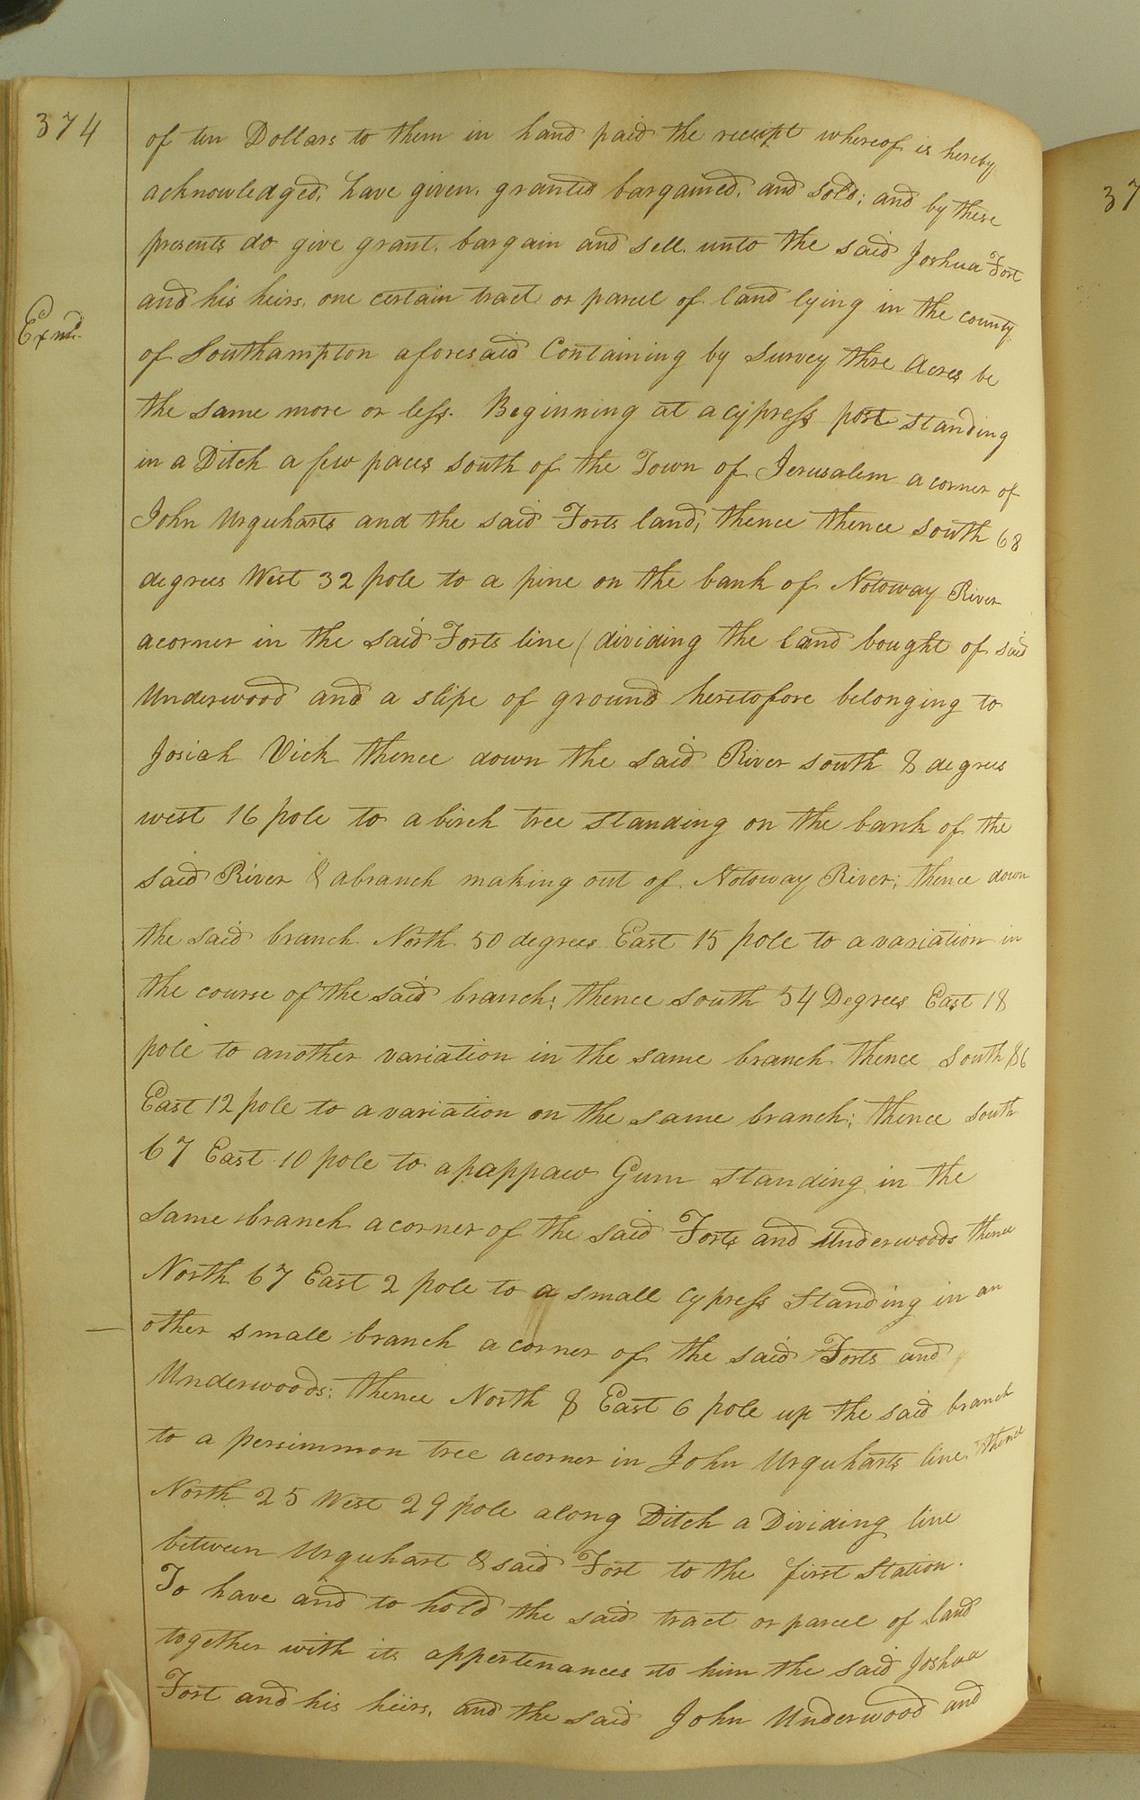 374
of ten Dollars to them in hand paid the receipt whereof is hereby
acknowledged, have given, granted bargained, and sold; and by these
presents do give grant, bargain and sell unto the said Joshua Fort
and his heirs, one certain tract or parcel of land lying in the county
Exmd.
of Southampton aforesaid Containing by Survey thre Acres be
the same more or less. Beginning at a cypress post standing
in a Ditch a few paces south of the Town of Jerusalem a corner of
John Urquharts and the said Forts land; thence thence south 68
degrees West 32 pole to a pine on the bank of Notoway River
acorner in the said Forts line (dividing the land bought of said
Underwood and a slipe of ground heretofore belonging to
Josiah Vick thence down the said River south 8 degrees
west 16 pole to a birch tree standing on the bank of the
said River & abranch making out of Notoway River; thence down
the said branch North 50 degrees East 15 pole to a variation in
the course of the said branch; thence south 54 Degrees East 18
pole to another variation in the same branch thence South 86
East 12 pole to a variation on the same branch; thence south
67 East 10 pole to apappaw Gum standing in the
same branch acorner of the said Forts and Underwoods thence
North 67 East 2 pole to a small cypress standing in an
other small branch a corner of the said Forts and
Underwoods: thence North 8 East 6 pole up the said branch
to a persimmon tree acorner in John Urquharts line, thence
North 25 West 29 pole along Ditch a Dividing line
between Urquhart & said Fort to the first Station.
To have and to hold the said tract or parcel of land
together with its appertenances to him the said Joshua
Fort and his heirs, and the said John Underwood and
37